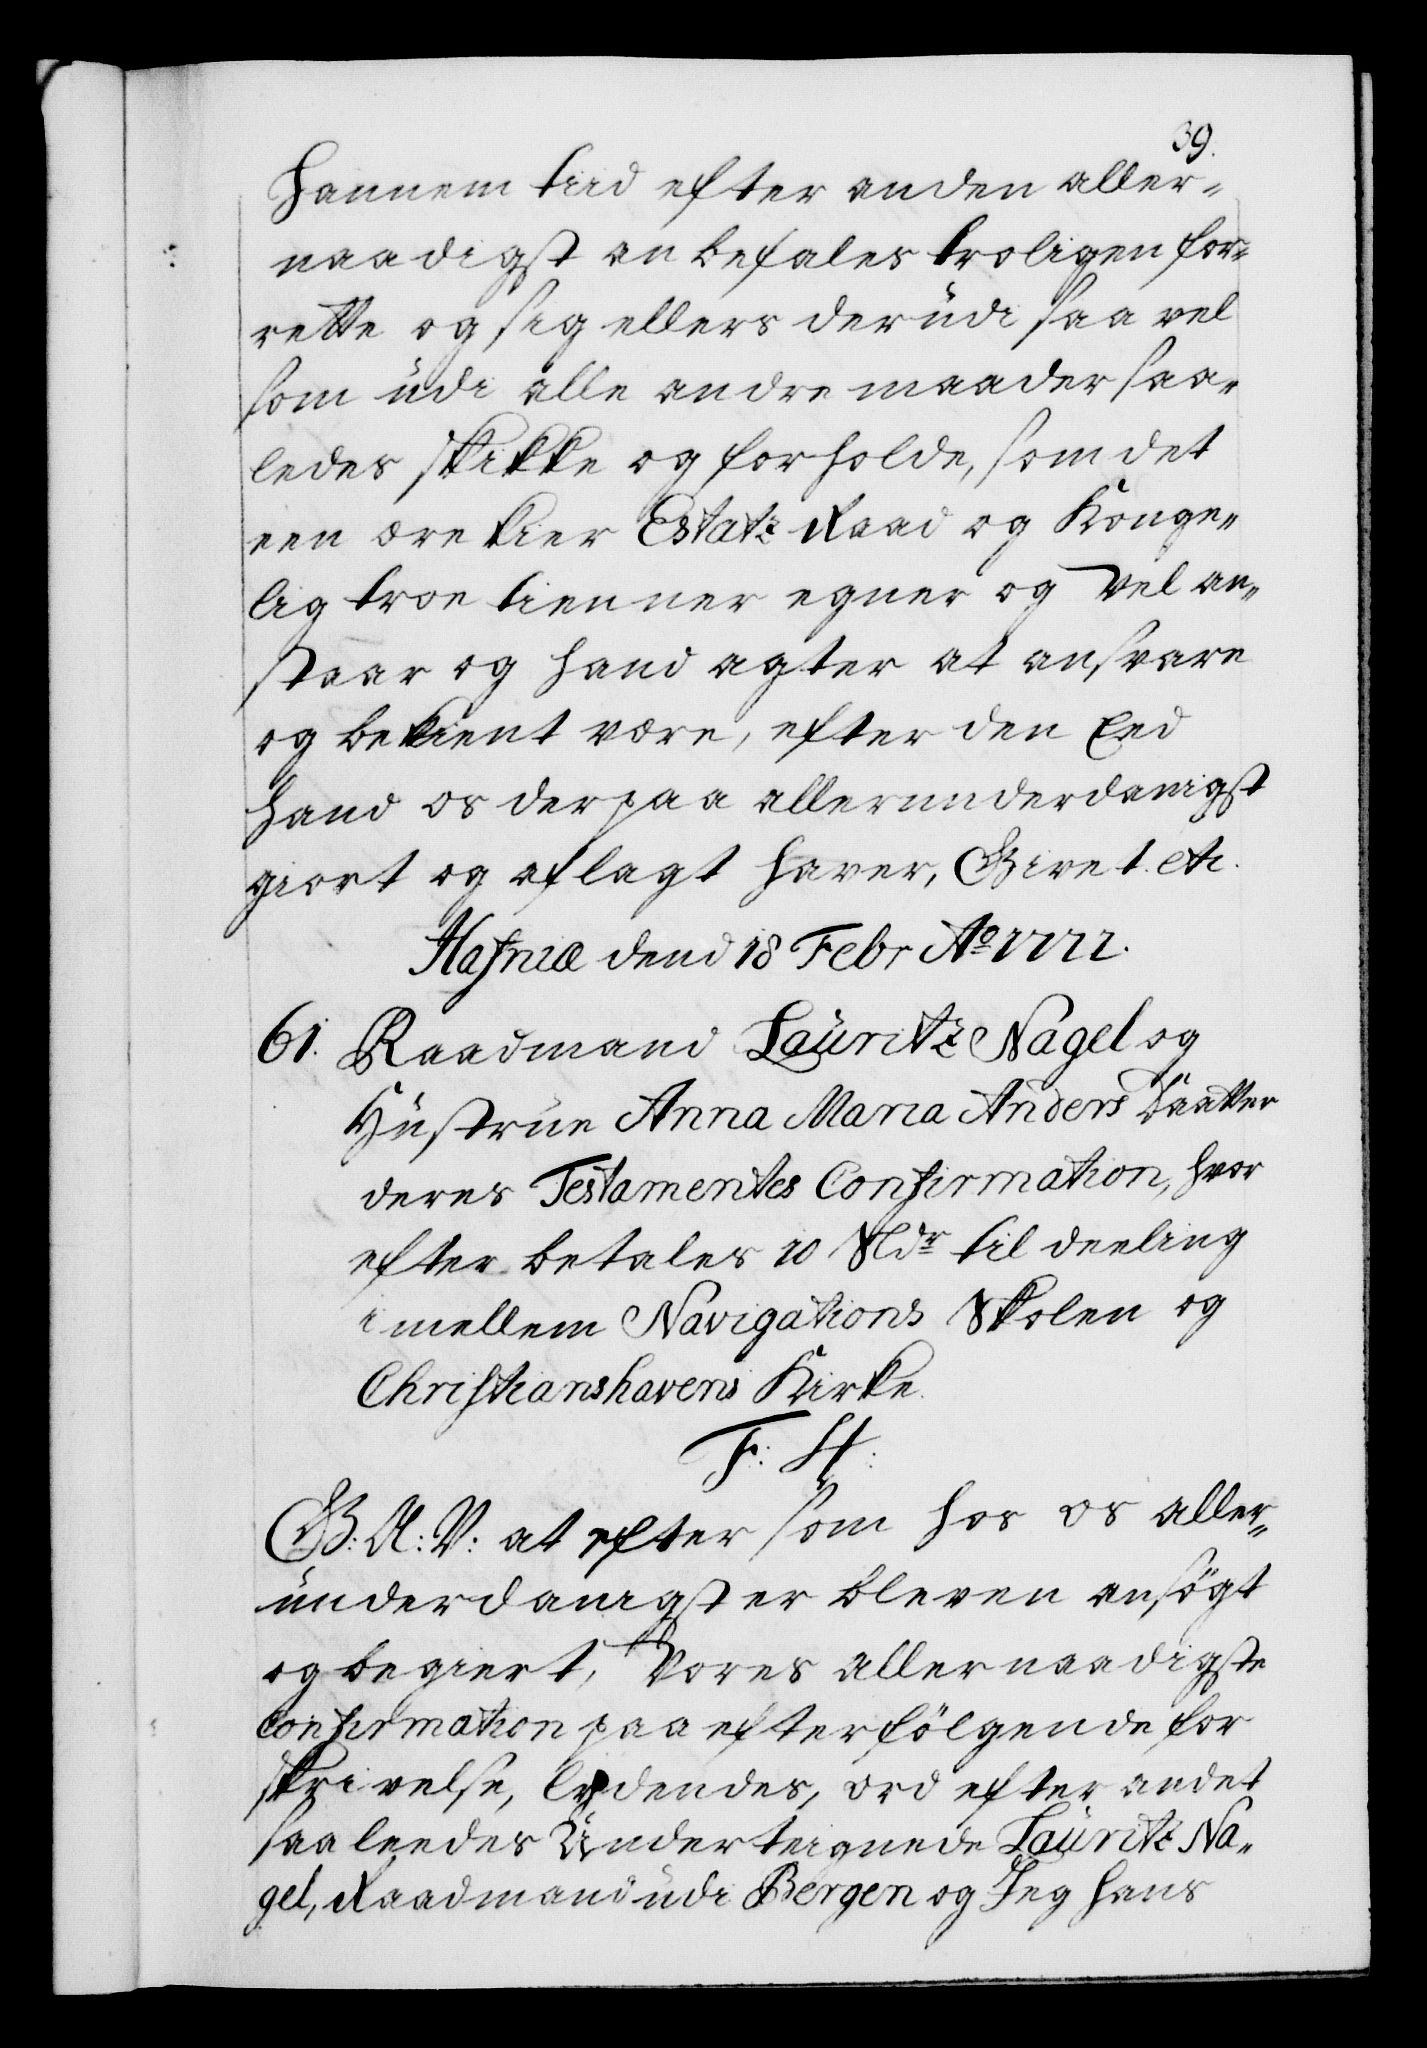 39.
hannem tiid efter anden aller-
naadigst anbefales troligen for-
rette og sig ellers derüdi saa vel
som üdi alle andre maader saa-
ledes skikke og forholde, som det
een ærekier Estatz Raad og Konge-
lig troe tienner egner og vel an-
staar og hand agter at ansvare
og bekient være, efter den Eed
hand os derpaa allerunderdanigst
giort og aflagt haver, Givet. etc.
Hafniæ dend 18 Febr Ao 1722.
61. Raadmand Lauritz Nagel og
Hüstrüe Anna Maria Anders Daatter
deres Testamentes Confirmation, hvor
efter betales 10 Rdr til deeling
imellem Navigations Skolen og
Christianshavens Kirke.
F: H:
G: A: V: at efter som hos os aller-
ünderdanigst er bleven ansögt
og begiert, Vores allernaadigste
Confirmation paa efterfölgende for
skrivelse, lydendes, ord efter andet
saaleedes Underteignede Lauritz Na-
gel, Raadmand üdi Bergen og Jeg hans